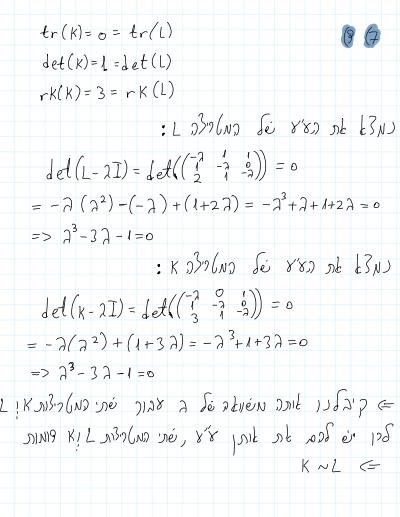 7
tr(K)=0=tr(L)
det(K)=1=det(L)
rk(K)=3=rk(L)
נמצא את הע"ע של המטריצה L:
det(L-λI)=det((-λ 1 1
1 -λ 0
2 1 -λ))=0
= -λ(λ²)-(-λ)+(1+2λ) = -λ³+λ+1+2λ=0
=> λ³-3λ-1=0
נמצא את הע"ע של המטריצה K:
det(K-λI)=det((-λ 0 1
1 -λ 0
3 1 -λ))=0
= -λ(λ²)+(1+3λ)=-λ³+1+3λ=0
=> λ³-3λ-1=0
<= קיבלנו אותה משוואה של λ עבור שתי המטריצות K ו L
לכן יש להם את אותן ע"ע, שתי המטריצות L ו K דומות
<= K~L